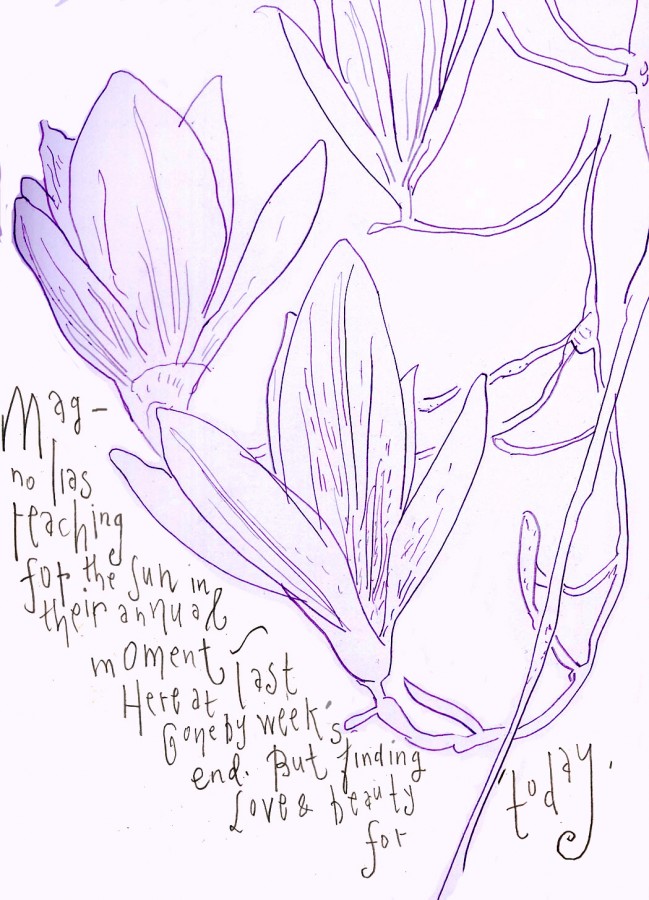 Mag-
no lias
reaching
for the sun in
their annual
moment –
Here at last
Gone by week's
end. But finding
Love & beauty
for today.